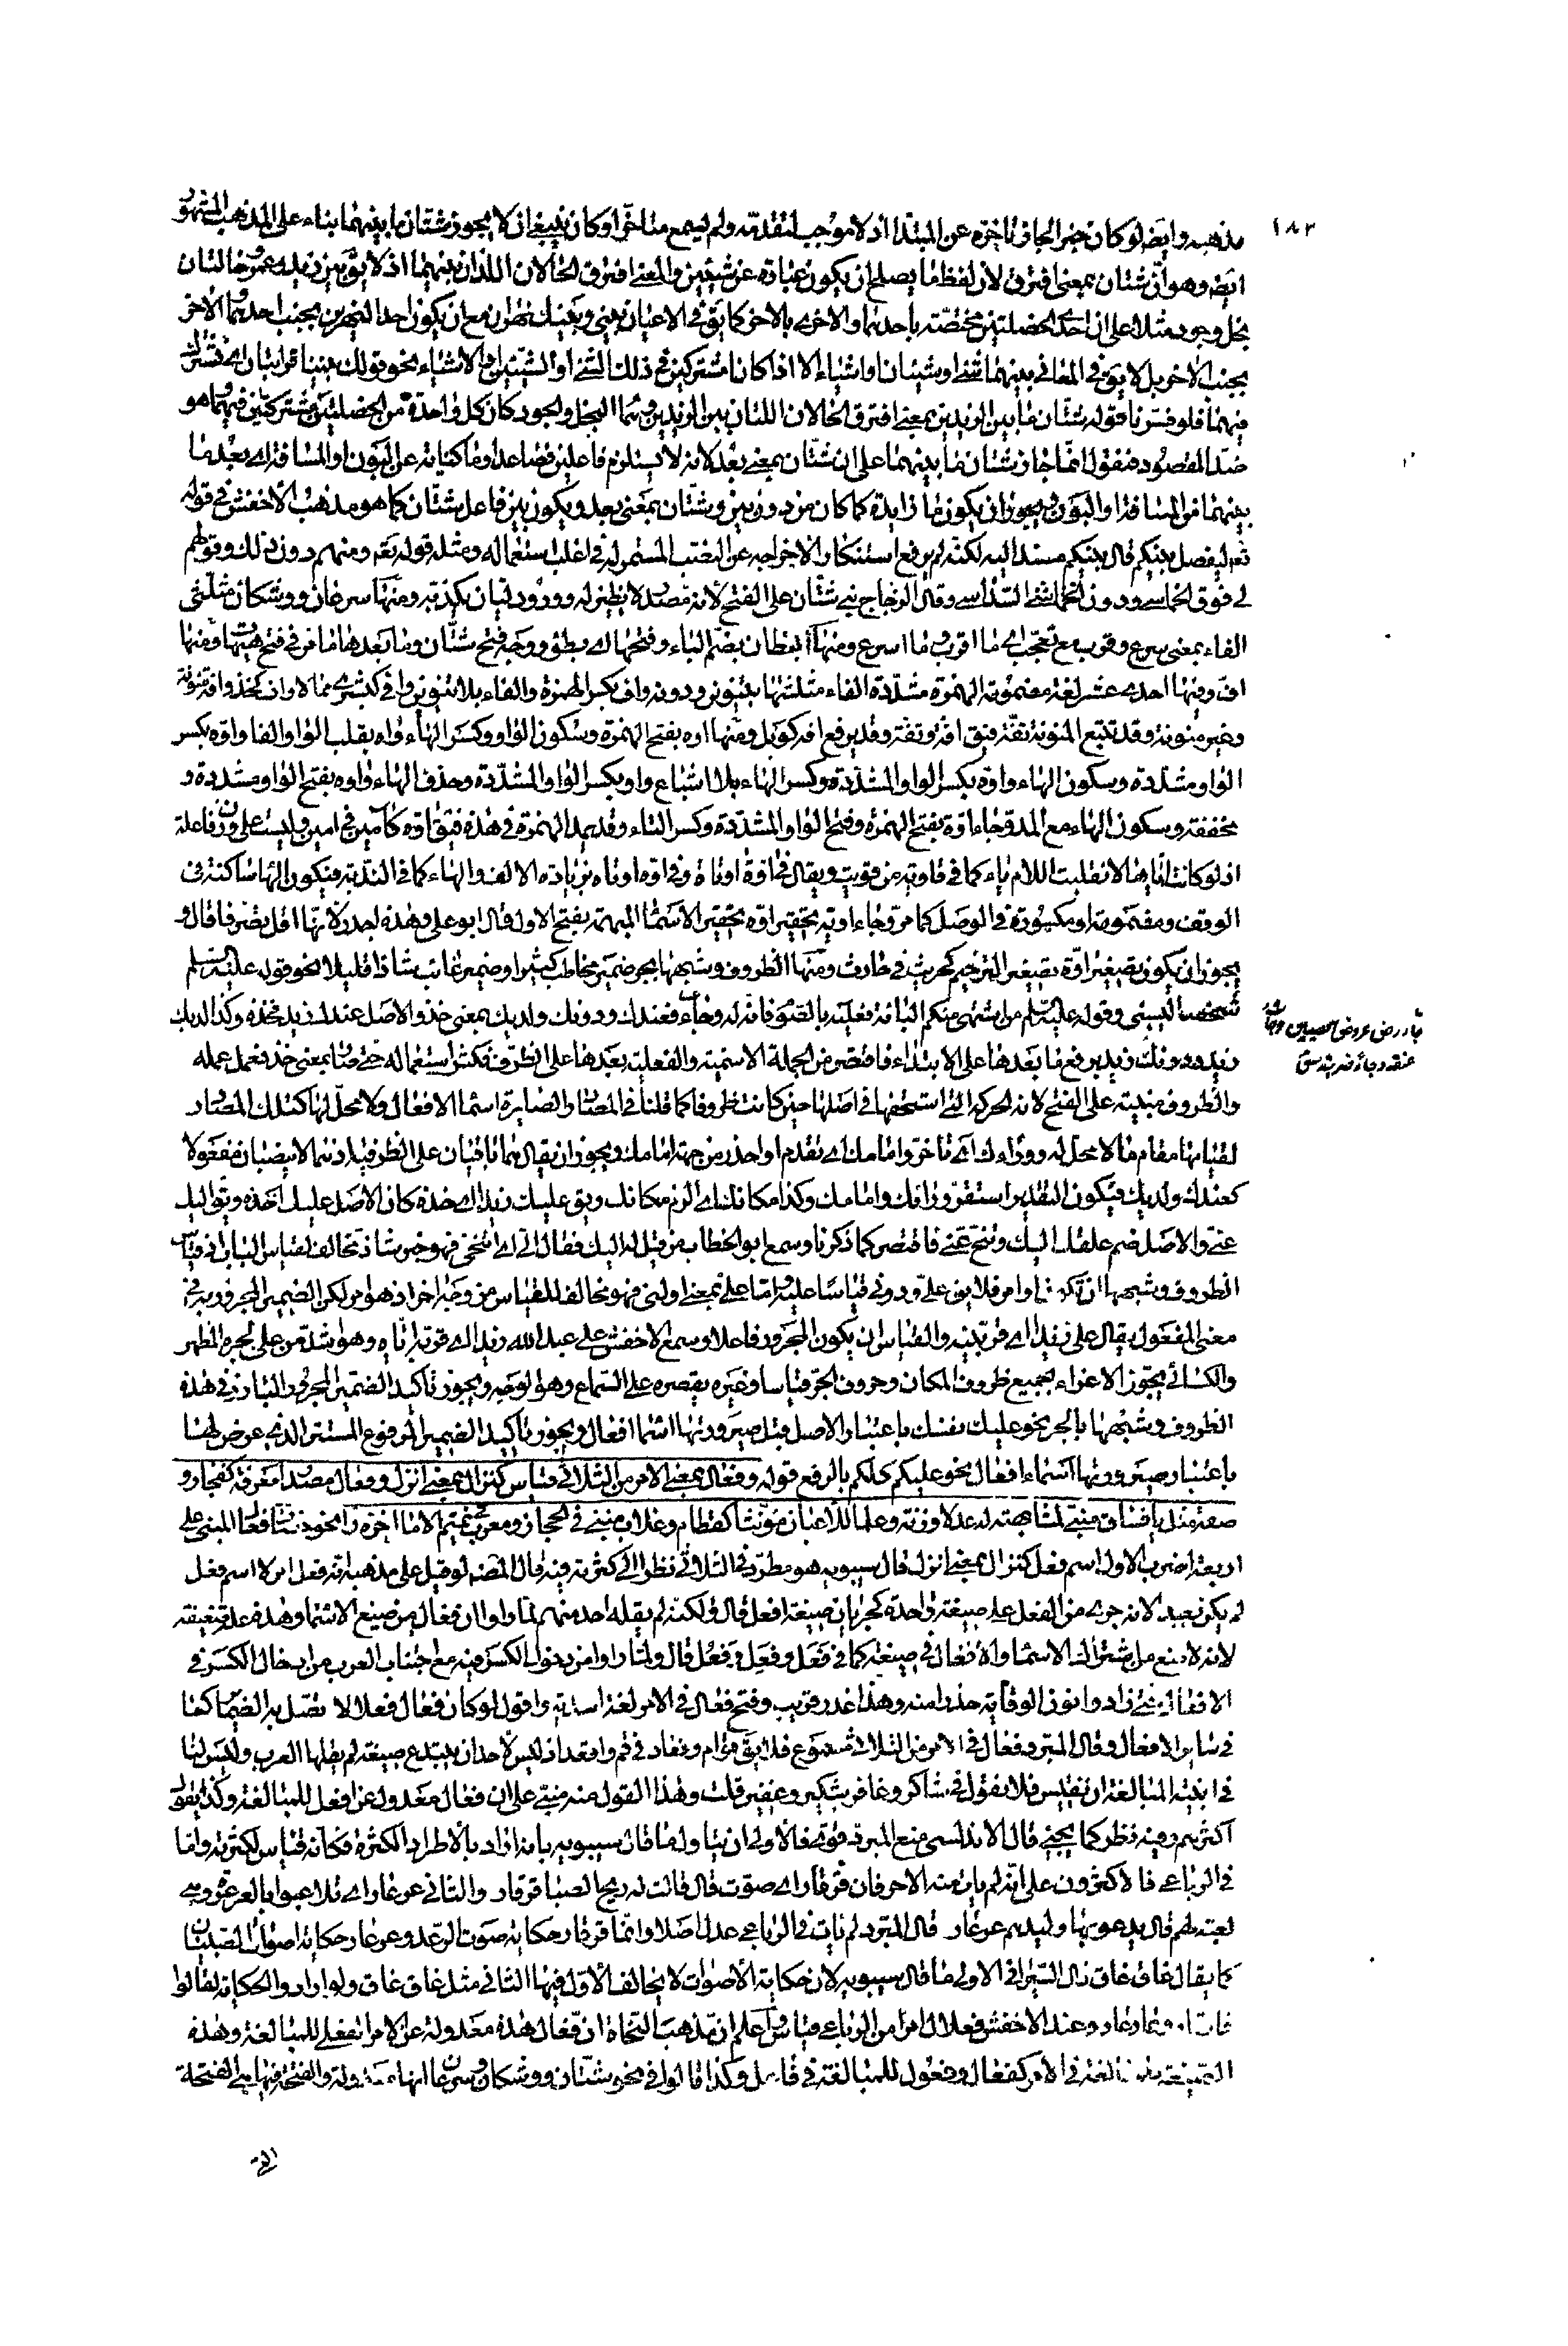 ١٨٣
مذهبه وايضه لو كان خبرا لجاز تاخره عن المبتدا اذ لا موجب لتقدمه ولم يسمع متاخرا وكان ينبغي ان لا يجوز شتان ما بينهما بناء على المذهب المشهور
ايضه وهو ان شتان بمعنى افترق لان لفظ ما يصلح ان يكون عبارة عن شيئين والمعنى افترق الحالان اللذان بينهما اذ لا يق بين زيد وعمرو حالتان
بخل وجود مثلا على ان احدى الخصلتين مختصة باحدهما والاخرى بالاخر كما يق في الاعيان بيني وبينك نهران مع ان يكون احد النهرين بجنب احدهما والاخر
بجنب الاخر بل لا يق في المعاني بينهما شئ او شيئان او اشياء الا اذا كانا مشتركين في ذلك الشئ او الشيئين او الاشياء نحو قولك بيننا قرابتان اي نشترك
فيهما فلو فسرنا قوله شتان ما بين اليزيدين بمعنى افترق الحالان اللتان بين اليزيدين وهما البخل والجود كان كل واحدة من الخصلتين مشتركتين فيهما وهو
ضد المقصود فنقول انما جاز شتان ما بينهما على ان شتان بمعنى بعد لانه لا يستلزم فاعلين فصاعدا وما كناية عن البون او المسافة اي بعد ما
بينهما من المسافة او البون ويجوز ان يكون ما زايدة كما كان من دون بين وشتان بمعنى بعد ويكون بين فاعل شتان كما هو مذهب الاخفش في قوله
تعه ليفصل بينكم قال بينكم مسند اليه لكنه لم يرفع استنكارا لاخراجه عن النصب المستمر له في اغلب استعماله ومثله قوله تعه ومنهم دون ذلك وقولهم
لي فوق الخماسي ودون السداسي وقال الزجاج بني شتان على الفتح لانه مصدر لا نظير له وورود ليان يكذبه ومنها سرعان ووشكان مثلثى
الفاء بمعنى سرع وقرب مع تعجب اي ما اقرب وما اسرع ومنها بطان بضم الباء وفتحها اي بطؤ ووجه فتح شتان وما بعدها ما مر في فتح هيهات ومنها
اف وفيها احدى عشر لغة مضمومة الهمزة مشددة الفاء مثلثتها بتنوين ودونه واف بكسر الهمزة والفاء بلا تنوين وافي كبشرى ممالا واف كخذ وافة منونة
وغير منونة وقد تتبع المنونة تفة فيق افة وتفة وقد يرفع افة كويل ومنها اوه بفتح الهمزة وسكون الواو وكسر الهاء واه بقلب الواو الفا واوه بكسر
الواو مشددة وسكون الهاء واوه بكسر الواو المشددة وكسر الهاء بلا اشباع واو بكسر الواو المشددة وحذف الهاء واوه بفتح الواو مشددة و
مخففة وسكون الهاء مع المد وجاء اوة بفتح الهمزة وفتح الواو المشددة وكسر التاء وقد يمد الهمزة في هذه فيق اوة كآمين في امين وليست على وزن فاعلة
اذ لو كانت اياها لانقلبت اللام ياء كما في قاوية من قويت ويقال في اوة اوتاه وفي اوه اوناه بزيادة الالف والهاء كما في الندبة فيكون الهاء ساكنة في
الوقف ومضمومة او مكسورة في الوصل كما مر وجاء اويه بتحقير اوه بتحقير الاسماء المبهمة بفتح الاول قال ابو علي وهذه اجدر لانها اقل تصرفا قال و
يجوز ان يكون تصغير اوة تصغير الترخيم كحريث في حارث ومنها الظروف وشبهها بجر ضمير مخاطب كثيرا وضمير غائب شاذا قليلا نحو قوله عليه السلم
ليسنى وقوله عليه السلم من اشتهى منكم الباءة فعليه بالصوم فانه له وجاء فعندك ودونك ولديك بمعنى خذ والاصل عندك زيد فخذه وكذا لديك
زيد ودونك زيد برفع ما بعدها على الابتداء فاقتصر من الجملة الاسمية والفعلية بعدها على الظرف فكثر استعماله حتى صار بمعنى خذ فعمل عمله
والظروف مبنية على الفتح لانه الحركة التي استحقها في اصلها حين كانت ظروفا كما قلنا في المصادر الصايرة اسماء الافعال ولا محل لها كتلك المصادر
لقيامها مقام ما لا محل له ووراءك اي تاخر وامامك اي تقدم او احذر من جهة امامك ويجوز ان يقال هما باقيان على الظرفية اذ هما لا ينصبان مفعولا
كعندك ولديك فيكون التقدير استقر وراءك وامامك وكذا مكانك اي الزم مكانك ويق عليك زيدا اي خذه كان الاصل عليك اخذه ويق اليك
عني والاصل ضم علقك اليك وتنح عني فاقتصر كما ذكرنا وسمع ابو الخطاب من قيل له اليك فقال الي اي اتنحى فهو خبر شاذ مخالف لقياس الباب اذ قياس
الظروف وشبهها ان تكون اوامر فلا يق علي ودوني قياسا عليه واما علي بمعنى اولني فهو مخالف للقياس من وجه اخر اذ هو امر لكن الضمير المجرور به في
معنى المفعول يقال علي زيدا اي قربنيه والقياس ان يكون المجرور فاعلا وسمع الاخفش على عبد الله زيدا اي قربه اياه وهو اشد من علي لجره المظهر
والكسائي يجوز الاغراء بجميع ظروف المكان وحروف الجر قياسا وغيره يقصره على السماع وهو الوجه ويجوز تاكيد الضمير المجرور البارز في هذه
الظروف وشبهها بالجر نحو عليك نفسك باعتبار الاصل قبل صيرورتها اسماء افعال ويجوز تاكيد الضمير المرفوع المستتر الذي عرض لها
باعتبار صيرورتها اسماء افعال نحو عليكم كلكم بالرفع قوله وفعال بمعنى الامر من الثلاثي قياس كنزال بمعنى انزل وفعال مصدرا معرفة كفجار و
صفة مثل يا فساق مبنى لمشابهته له عدلا وزنة وعلما للاعيان مؤنثا كقطام وغلاب مبنى في الحجاز ومعرب في تميم الا ما اخره را نحو حضار فعال المبنى على
اربعة اضرب الاول اسم فعل كنزال بمعنى انزل قال سيبويه هو مطرد في الثلاثي نظرا الى كثرته فيه قال المصنه لو قيل على مذهبه انه فعل امر لا اسم فعل
لم يكن بعيدا لانه جرى من الفعل على صيغة واحدة كجريان صيغة افعل قال ولكنه لم يقله احد منهم لما راوا ان فعال من صيغ الاسماء وهذه علة ضعيفة
لانه لا منع من اشتراك الاسماء والافعال في صيغة كما في فعل وفعل وفعل قال ولما راوا من دخول الكسر فيه مع اجتناب العرب من ادخال الكسر في
الافعال حتى زادوا نون الوقاية حذرا منه وهذا عذر قريب وفتح فعال في الامر لغة اسدية واقول لو كان فعال فعلا لاتصل به الضمائر كما
في سائر الافعال وقال المبرد فعال في الامر من الثلاثي مسموع فلا يق قوام وقعاد في قم واقعد اذ ليس لاحد ان يبتدع صيغة لم يقلها العرب وليس لنا
في ابنية المبالغة ان نقيس فلا نقول في شاكر وغافر شكير وغفير قلت وهذا القول منه مبنى على ان فعال معدول عن افعل للمبالغة وكذا يقول
اكثرهم وفيه نظر كما يجئ قال الاندلسي منع المبرد قوي فالاولى ان يتاول ما قال سيبويه بانه اراد بالاطراد الكثرة فكانه قياس لكثرته واما
في الرباعي فالاكثرون على انه لم يات منه الا حرفان قرقار اي صوت قال قالت له ريح الصبا قرقار والثاني عرعار اي تلاعبوا بالعرعرة وهي
لعبة لهم قال يدعو بها وليدهم عرعار قال المبرد لم يات في الرباعي عدل اصلا وانما قرقار حكاية صوت الرعد وعرعار حكاية اصوات الصبيان
كما يقال غاق غاق قال السيرافي الاولى ما قال سيبويه لان حكاية الاصوات لا يخالف الاول فيها الثاني مثل غاق غاق ولو ارادوا الحكاية لقالوا
قار قار وعار عار وعند الاخفش فعلال امرا من الرباعي قياس واعلم ان مذهب النحاة ان فعال هذه معدولة عن الامر الفعلي للمبالغة وهذه
الصيغة للمبالغة في الامر كفعال وفعول للمبالغة في فاعل وكذا قالوا في نحو شتان ووشكان وسرعان انها معدولة والفتحة فيها هي الفتحة